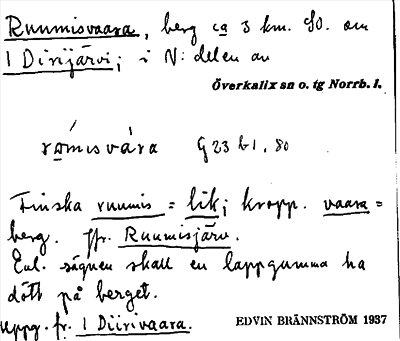 Ruumisvaara, berg ca 3 km. SO. om
1 Dirijärvi; i N: delen av
Överkalix sn o. tg Norrb. l.
rɷmisvára G 23 b 1. 80
Finska ruumis = lik; kropp. vaara =
berg. Jfr. Ruumisjärv.
Enl. sägnen skall en lappgumma ha
dött på berget.
uppg. fr. 1 Diirivaara.
EDVIN BRÄNNSTRÖM 1937